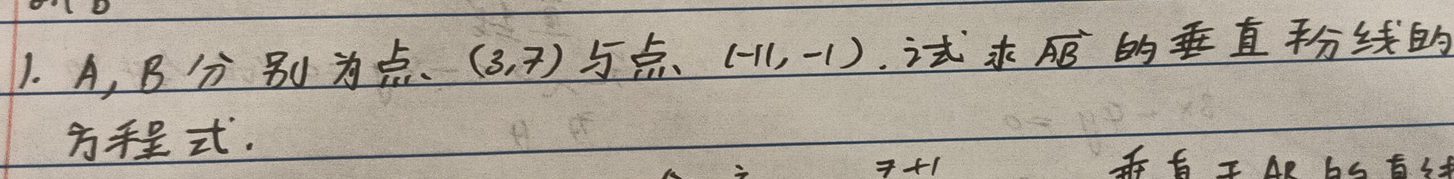 1. A, B 分别为点、(3,7) 与点、(-11,-1). 试求 AB 的垂直平分线的
方程式.
7+1 垂直于 AB 的直线